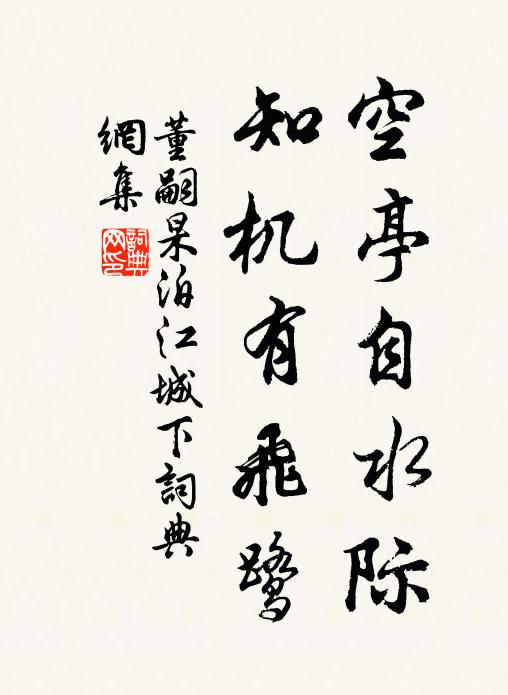 空亭自水际
知机有飛鹭
董嗣杲泊江城下詞典
網集
詞典
网印